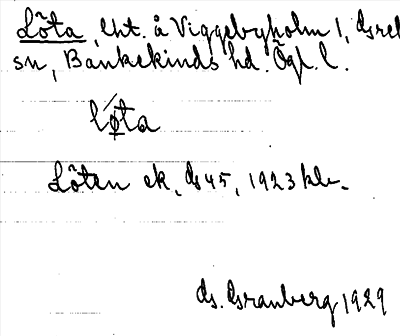 Löta, lht. å Viggebyholm 1, Grebo
sn, Bankekinds hd. Ögl. l.
lǿta
Löten ek. G 45, 1923 kb.
G. Granberg 1929